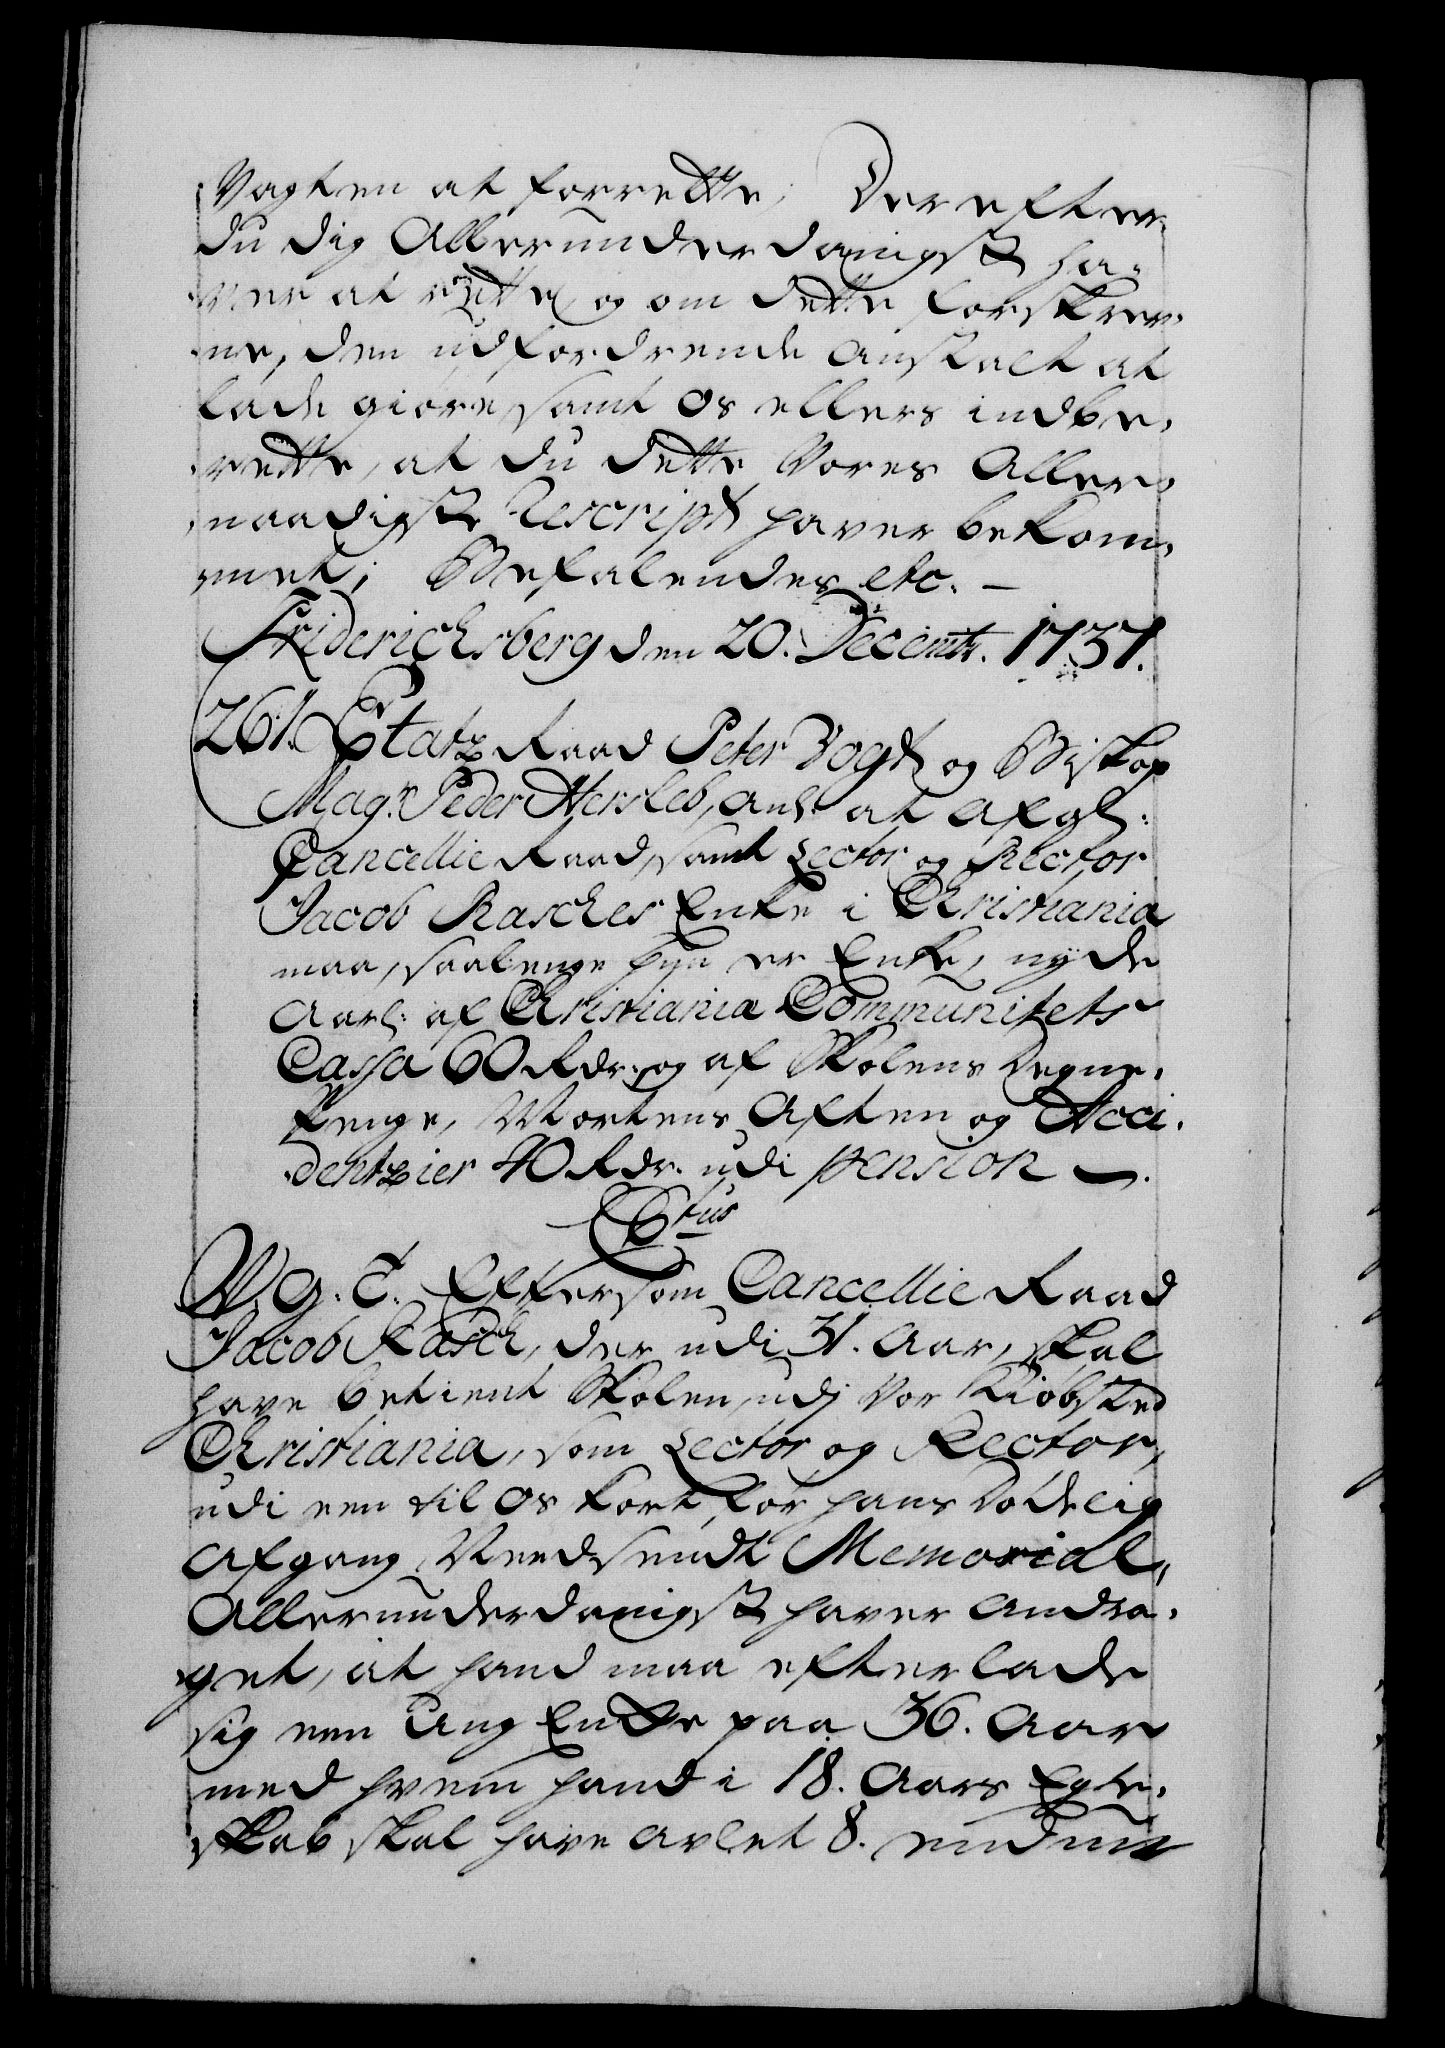 Vagten at forrette; Derefter
du dig Allerunderdanigst ha-
ver at rette, og om dette forskrev-
ne, den udfordrende Anstalt at
lade giøre, samt os ellers indbe-
rette, at du dette Vores Aller-
naadigste Rescript haver bekom-
met; Befalendes etc. —
Friderichsberg den 20. Decembr. 1737.
261. Etatz Raad Peter Vogt og Biskop
Magr. Peder Hersleb, anl: at afgl:
Cancellie Raad, samt Lector og Rector
Jacob Rasches Enke i Christiania
maa, saalenge hun er Enke, nyde
Aarl: af Christiania Communitets
Cassa 60 Rdr. og af Skolens Degne-
Penge, Mortens Aften og Acci-
dentzier 40 Rdr. udi pension —.
C6tus
V. G. T. Eftersom Cancellie Raad
Jacob Rasch, der udi 31. Aar, skal
have betient Skolen udj vor Kiøbsted
Christiania, som Lector og Rector,
udi een til os kort før hans Dødelig
Afgang Needsendt Memorial,
Allerunderdanigst haver Andra-
get, at hand maa efterlade
sig een Ung Enke paa 36. Aar
med hvem hand i 18. Aars Egte-
skab skal have avlet 8. endnu